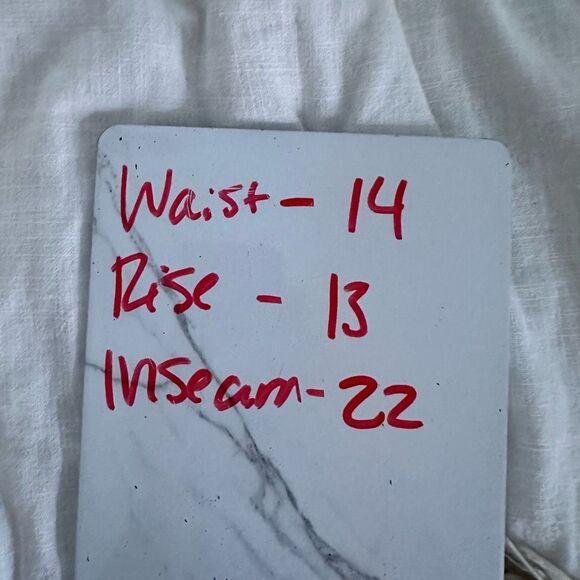 Waist - 14
Rise - 13
Inseam - 22